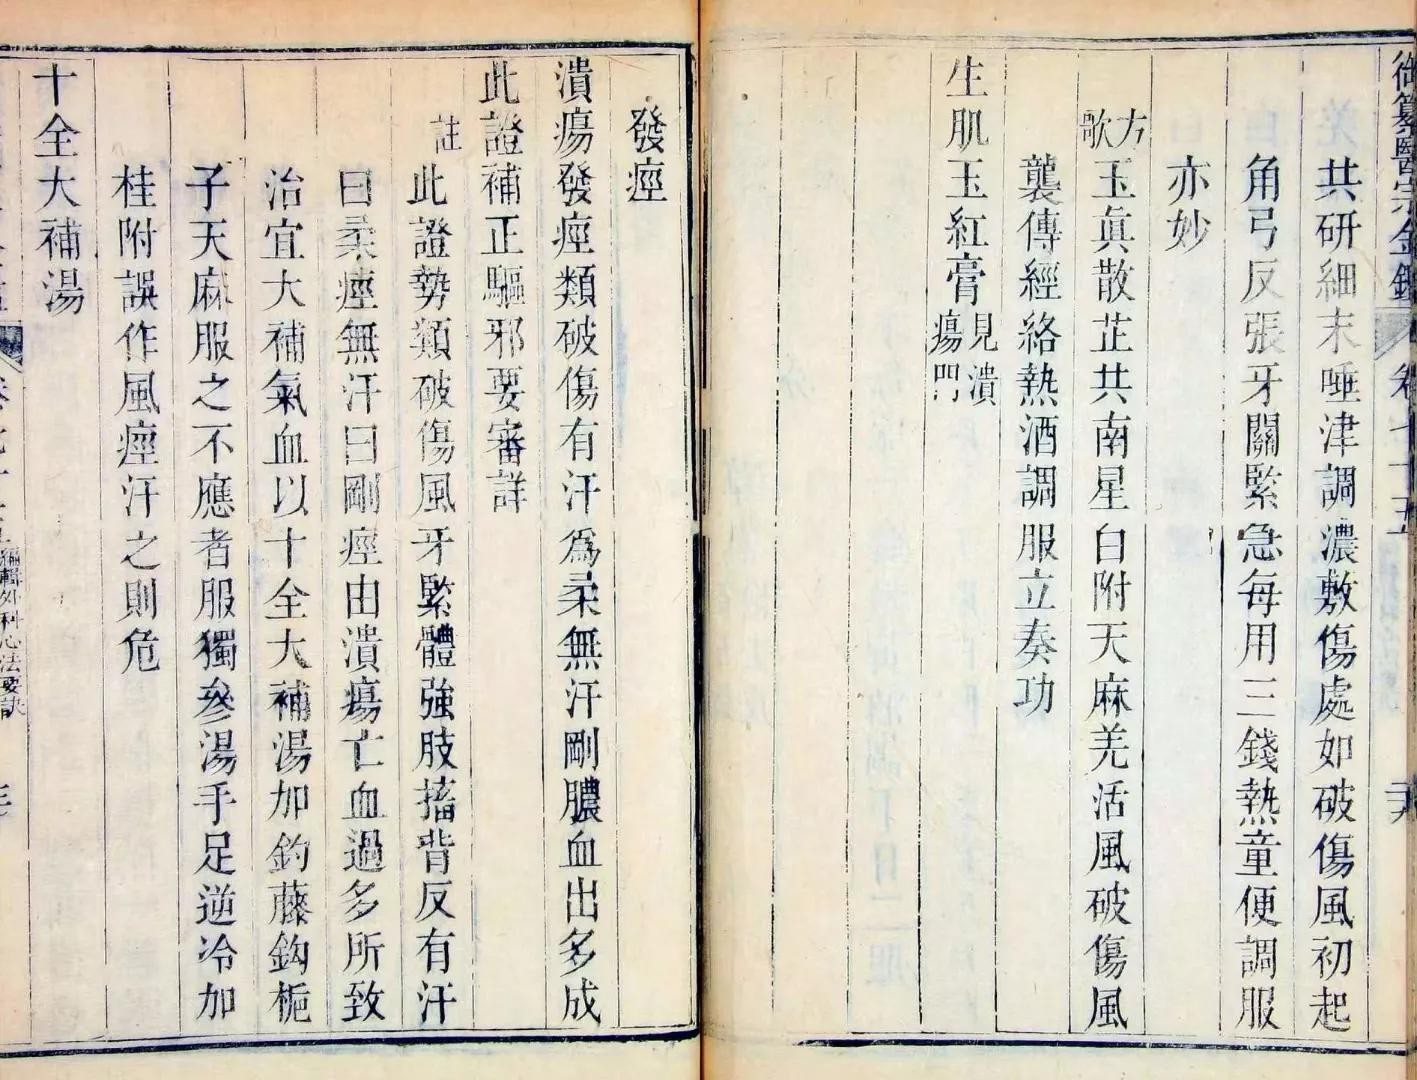 御纂醫宗金鑑 卷七十五 二六
共研細末唾津調濃敷傷處如破傷風初起
角弓反張牙關緊急每用三錢熱童便調服
亦妙
方歌 玉眞散芷共南星白附天麻羌活風破傷風
襲傳經絡熱酒調服立奏功
生肌玉紅膏見潰瘍門
發痙
潰瘍發痙類破傷有汗爲柔無汗剛膿血出多成
此證補正驅邪要審詳
註 此證勢類破傷風牙緊體強肢搐背反有汗
曰柔痙無汗曰剛痙由潰瘍亡血過多所致
治宜大補氣血以十全大補湯加釣藤鈎梔
子天麻服之不應者服獨參湯手足逆冷加
桂附誤作風痙汗之則危
十全大補湯
編輯外科心法要訣